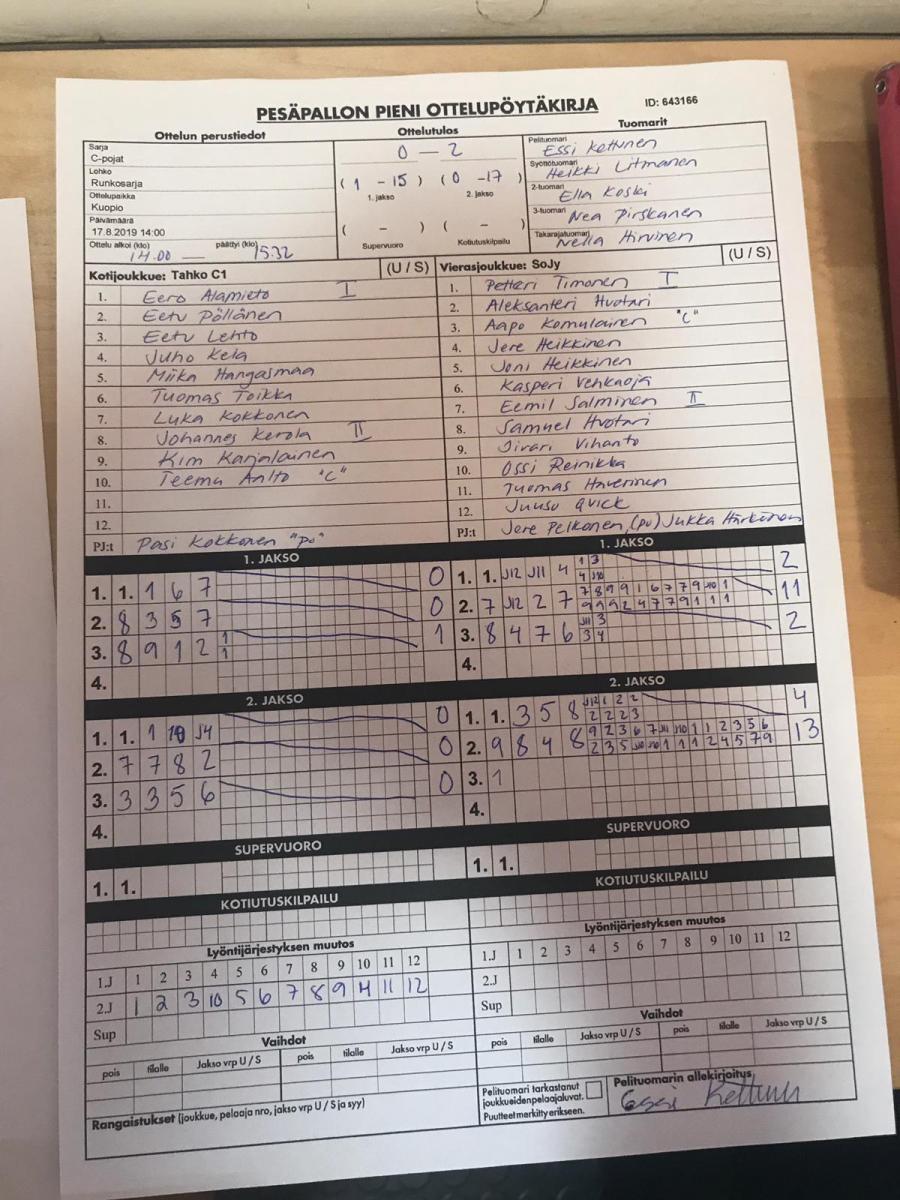 PESÄPALLON PIENI OTTELUPÖYTÄKIRJA ID: 643166
Ottelun perustiedot Ottelutulos Tuomarit
Sarja
C-pojat
Lohko
Runkosarja
Ottelupaikka
Kuopio
Päivämäärä
17.8.2019 14:00
Ottelu alkoi (klo) päättyi (klo)
14.00 — 15.32
0 — 2
( 1 - 15 ) ( 0 - 17 )
1. jakso 2. jakso
( - ) ( - )
Supervuoro Kotiutuskilpailu
Pelituomari
Essi Kettunen
Syöttötuomari
Heikki Litmanen
2-tuomari
Ella Koski
3-tuomari
Nea Pirskanen
Takarajatuomari
Nella Hirvinen
Kotijoukkue: Tahko C1 (U / S)
1. Eero Alamieto I
2. Eetu Pöllänen
3. Eetu Lehto
4. Juho Kela
5. Miika Hangasmaa
6. Tuomas Toikka
7. Luka Kokkonen
8. Johannes Kerola II
9. Kim Karjalainen
10. Teemu Aalto "C"
11.
12.
PJ:t Pasi Kokkonen "PJ"
Vierasjoukkue: SoJy (U / S)
1. Petteri Timonen I
2. Aleksanteri Huotari
3. Aapo Komulainen "C"
4. Jere Heikkinen
5. Joni Heikkinen
6. Kasperi Vehkaoja
7. Eemil Salminen II
8. Samuel Huotari
9. Iivari Vihanto
10. Ossi Reinikka
11. Tuomas Haverinen
12. Juuso Qvick
PJ:t Jere Pelkonen, (PJ) Jukka Härkönen
1. JAKSO
1. 1. 1 6 7 0
2. 8 3 5 7 0
3. 8 9 1 2 1 1 1
4.
1. JAKSO
1. 1. J12 J11 4 1 3 2
4 J10
2. 7 J12 2 7 7 8 9 9 1 6 7 7 9 J10 1 11
9 9 9 2 4 7 7 9 1 1 1
3. 8 4 7 6 J11 3 2
3 4
4.
2. JAKSO
1. 1. 1 10 J4 0
2. 7 7 8 2 0
3. 3 3 5 6 0
4.
2. JAKSO
1. 1. 3 5 8 J12 1 2 2 4
2 2 2 3
2. 9 8 4 8 9 2 3 6 7 J11 J10 1 1 2 3 5 6 13
2 3 5 J10 J10 1 1 1 2 4 5 7 9
3. 1
4.
SUPERVUORO
1. 1.
SUPERVUORO
1. 1.
KOTIUTUSKILPAILU
KOTIUTUSKILPAILU
Lyöntijärjestyksen muutos
1.J 1 2 3 4 5 6 7 8 9 10 11 12
2.J 1 2 3 10 5 6 7 8 9 4 11 12
Sup
Lyöntijärjestyksen muutos
1.J 1 2 3 4 5 6 7 8 9 10 11 12
2.J
Sup
Vaihdot
pois tilalle Jakso vrp U / S pois tilalle Jakso vrp U / S
Vaihdot
pois tilalle Jakso vrp U / S pois tilalle Jakso vrp U / S
Rangaistukset (joukkue, pelaaja nro, jakso vrp U / S ja syy)
Pelituomari tarkastanut
joukkueiden pelaajaluvat.
Puutteet merkitty erikseen.
Pelituomarin allekirjoitus
Essi Kettunen